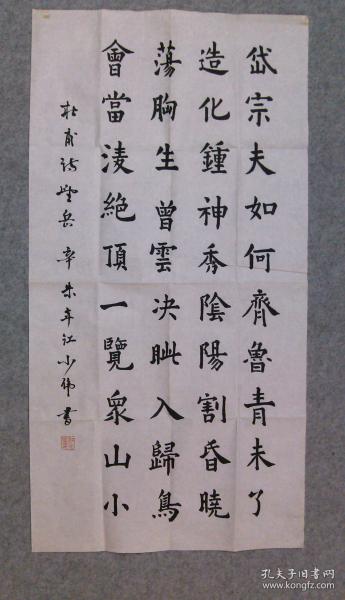 岱宗夫如何齊魯青未了
造化鍾神秀陰陽割昏曉
蕩胸生曾雲决眦入歸鳥
會當淩絶頂一覽衆山小
杜甫詩望岳 辛未年江少伟書
孔夫子旧书网
www.kongfz.com